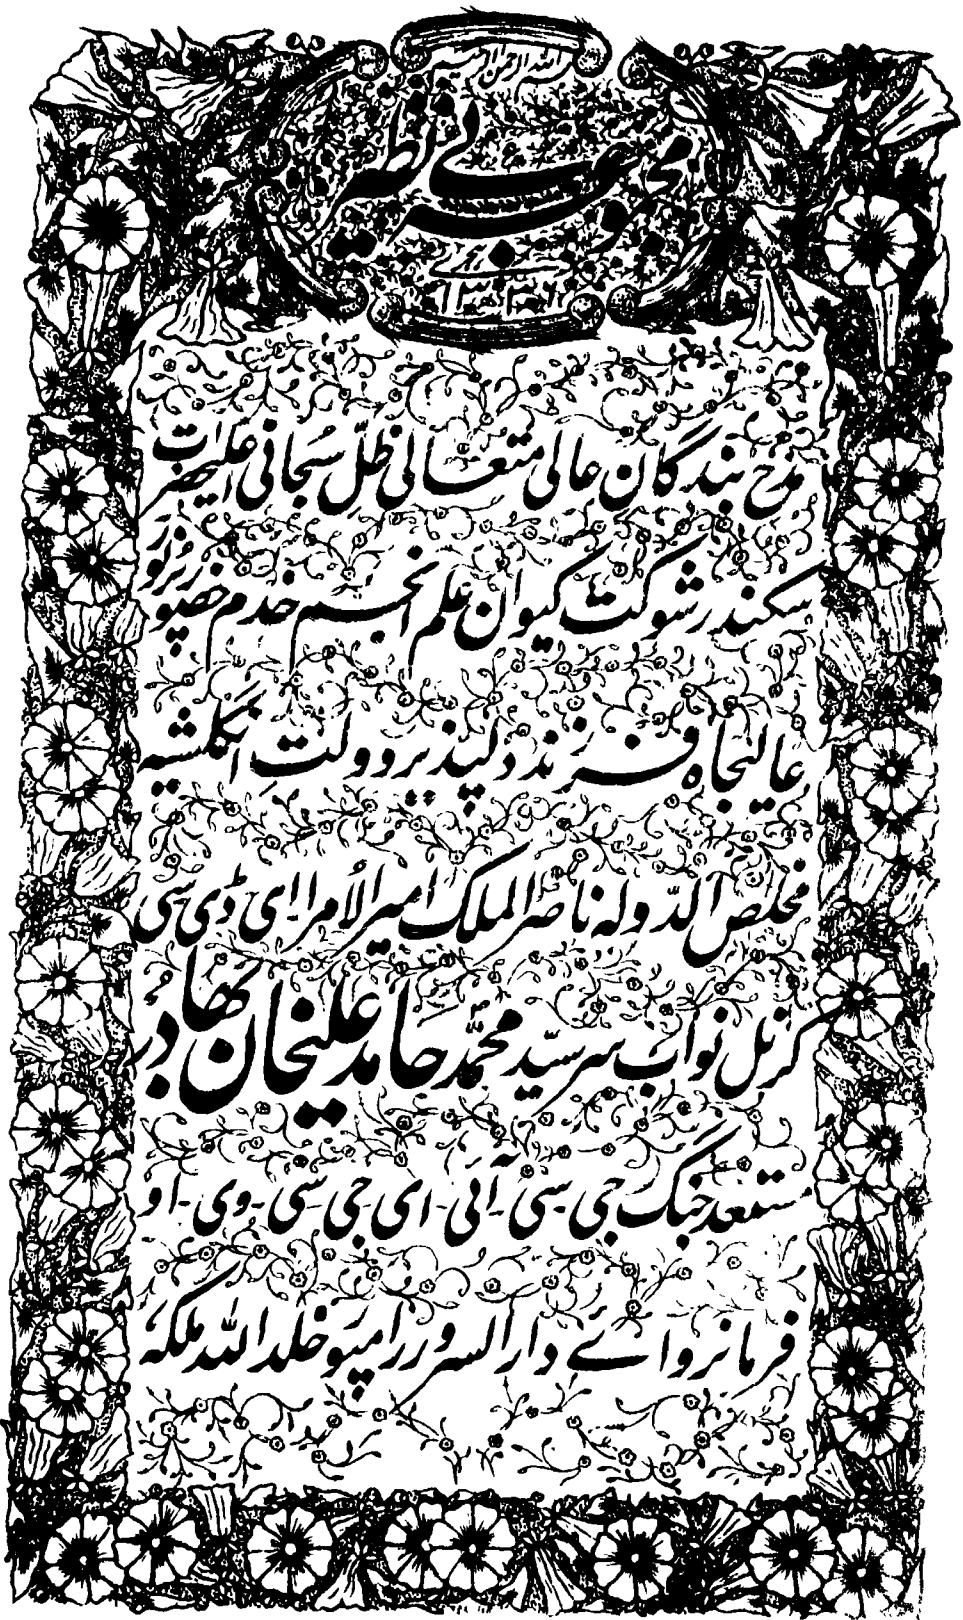 بسم اللہ الرحمن الرحیم
محبوب بے نظیر
۱۳۳۶ ہجری
مدح بندگان عالی متعالی ظلِّ سُبحانی اعلیٰحضرت
سکندر شوکت کیوان علم انجم خدم حضور پُر نور
عالیجاہ فرزند دلپذیر دولتِ انگلشیہ
مخلص الدّولہ ناصر الملک امیر الاُمرا اے ڈی سی
کرنل نواب سر سیّد محمّد حامد علیخان بھادُر
مستعد جنگ جی سی آئی ای جی سی وی او
فرمانروائے دار السرور رامپور خلد اللّٰہ ملکہٗ